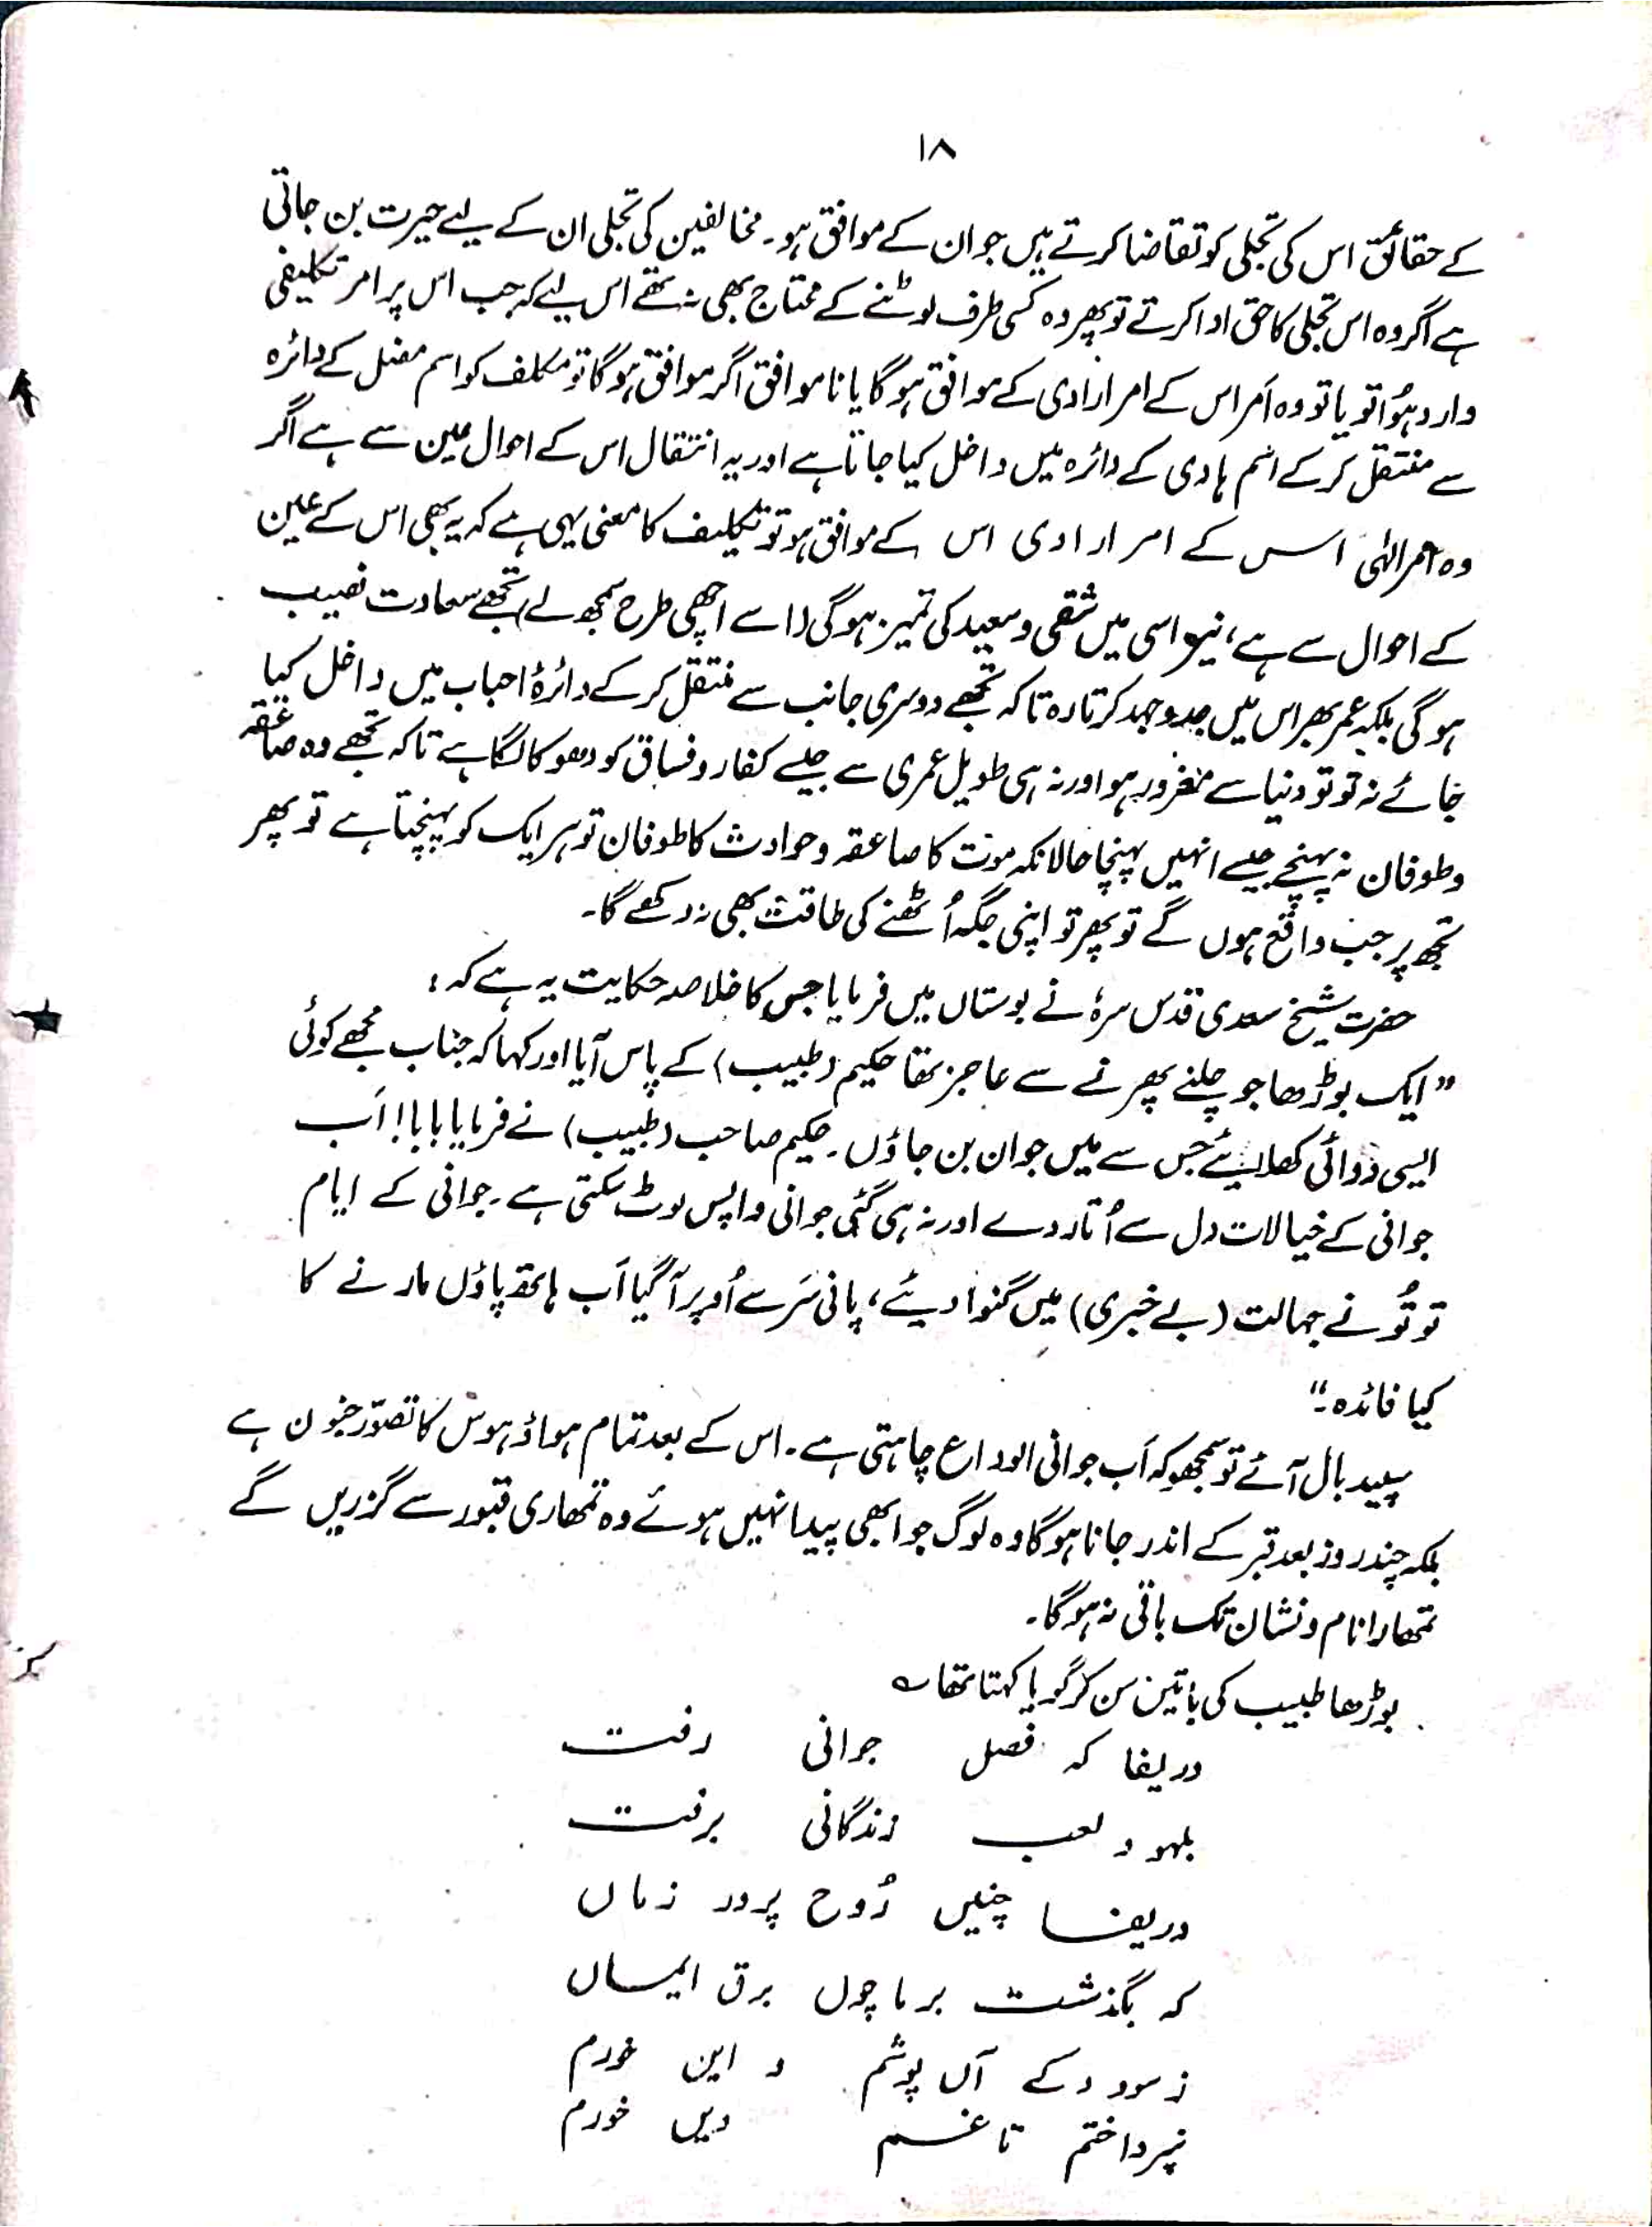 ۱۸
کے حقائق اس کی تجلی کو تقاضا کرتے ہیں جو ان کے موافق ہو۔ مخالفین کی تجلی ان کے لیے حیرت بن جاتی
ہے اگر وہ اس تجلی کا حق ادا کرتے تو پھر وہ کسی طرف لوٹنے کے محتاج بھی نہ تھے اس لیے کہ جب اس پر امر تکلیفی
وارد ہُوا تو یا تو وہ اَمر اس کے امر ارادی کے موافق ہوگا یا ناموافق اگر موافق ہوگا تو مکلف کو اسم مضل کے دائرہ
سے منتقل کر کے اسم ہادی کے دائرہ میں داخل کیا جاتا ہے اور یہ انتقال اس کے احوال عین سے ہے اگر
وہ امر الٰہی اس کے امر ارادی اس کے موافق ہو تو تکلیف کا معنی یہی ہے کہ یہ بھی اس کے عین
کے احوال سے ہے، نیز اسی میں شقی و سعید کی تمیز ہوگی (اسے اچھی طرح سمجھ لے) تجھے سعادت نصیب
ہوگی بلکہ عمر بھر اس میں جدوجہد کرتا رہ تاکہ تجھے دوسری جانب سے منتقل کر کے دائرۂ احباب میں داخل کیا
جائے نہ تو تو دنیا سے مغرور ہو اور نہ ہی طویل عمری سے جیسے کفار و فساق کو دھوکا لگا ہے تاکہ تجھے وہ صاعقہ
و طوفان نہ پہنچے جیسے انہیں پہنچا حالانکہ موت کا صاعقہ و حوادث کا طوفان تو ہر ایک کو پہنچتا ہے تو پھر
تجھ پر جب واقع ہوں گے تو پھر تو اپنی جگہ اُٹھنے کی طاقت بھی نہ رکھے گا۔
حضرت شیخ سعدی قدس سرہٗ نے بوستاں میں فرمایا جس کا خلاصہ حکایت یہ ہے کہ :
” ایک بوڑھا جو چلنے پھرنے سے عاجز تھا حکیم (طبیب) کے پاس آیا اور کہا کہ جناب مجھے کوئی
ایسی دوائی کھلایئے جس سے میں جوان بن جاؤں۔ حکیم صاحب (طبیب) نے فرمایا بابا! اَب
جوانی کے خیالات دل سے اُتار دے اور نہ ہی گئی جوانی واپس لوٹ سکتی ہے۔ جوانی کے ایام
تو تُو نے جہالت (بے خبری) میں گنوا دیئے، پانی سَر سے اُوپر آ گیا اَب ہاتھ پاؤں مارنے کا
کیا فائدہ۔“
سپید بال آئے تو سمجھو کہ اَب جوانی الوداع چاہتی ہے۔ اس کے بعد تمام ہواؤ ہوس کا تصوّر جنون ہے
بلکہ چند روز بعد قبر کے اندر جانا ہوگا وہ لوگ جو ابھی پیدا نہیں ہوئے وہ تمھاری قبور سے گزریں گے
تمھارا نام و نشان تک باقی نہ ہوگا۔
بوڑھا طبیب کی باتیں سن کر گویا کہتا تھا ؎
دریغا کہ فصل جوانی رفت
بلہو و لعب زندگانی برفت
دریغا چنیں رُوح پرور زماں
کہ بگذشت بر ما چوں برق ایساں
ز سود و کے آں پوشم و این خورم
نپرداختم تا غم دیں خورم